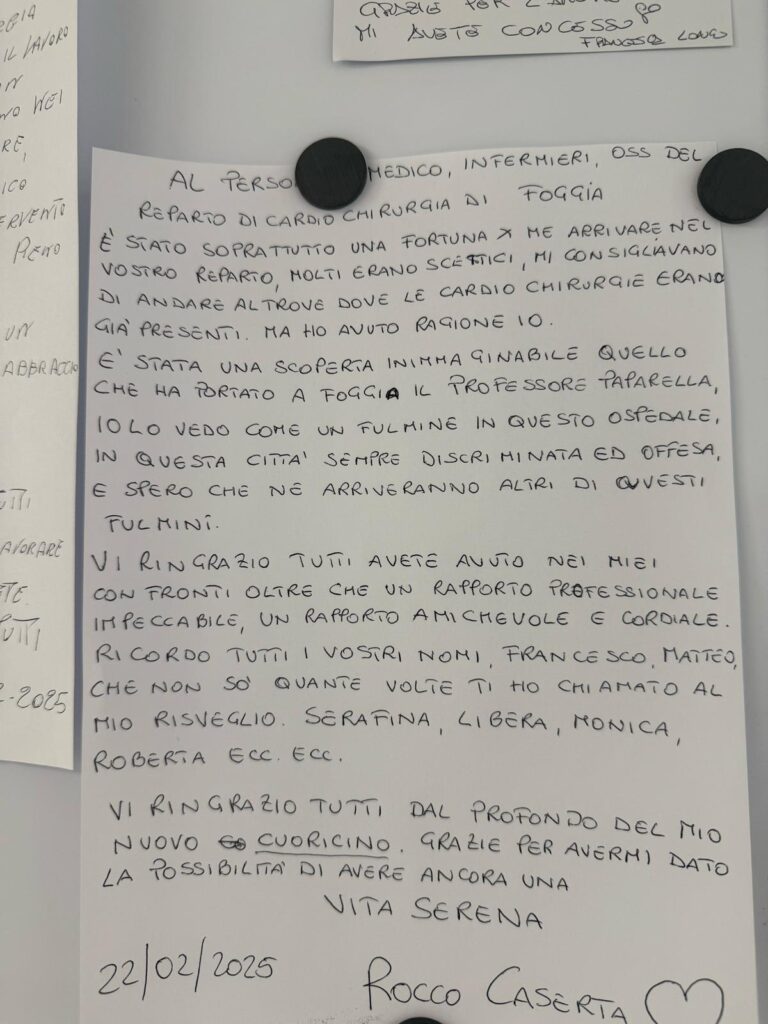 GRAZIE PER
MI AVETE CONCESSO
FRANCESCA LONGO
IL LAVORO
RE,
ICO
ERVENTO
PIENO
UN
ABBRACCIO
UTTI
AVORARE
ETE
TUTTI
2-2025
AL PERSO MEDICO, INFERMIERI, OSS DEL
REPARTO DI CARDIO CHIRURGIA DI FOGGIA
È STATO SOPRATTUTTO UNA FORTUNA X ME ARRIVARE NEL
VOSTRO REPARTO, MOLTI ERANO SCETTICI, MI CONSIGLIAVANO
DI ANDARE ALTROVE DOVE LE CARDIO CHIRURGIE ERANO
GIÀ PRESENTI. MA HO AVUTO RAGIONE IO.
E' STATA UNA SCOPERTA INIMMAGINABILE QUELLO
CHE HA PORTATO A FOGGIA IL PROFESSORE PAPARELLA,
IO LO VEDO COME UN FULMINE IN QUESTO OSPEDALE,
IN QUESTA CITTA' SEMPRE DISCRIMINATA ED OFFESA,
E SPERO CHE NE ARRIVERANNO ALTRI DI QUESTI
FULMINI.
VI RINGRAZIO TUTTI AVETE AVUTO NEI MIEI
CONFRONTI OLTRE CHE UN RAPPORTO PROFESSIONALE
IMPECCABILE, UN RAPPORTO AMICHEVOLE E CORDIALE.
RICORDO TUTTI I VOSTRI NOMI, FRANCESCO, MATTEO,
CHE NON SO' QUANTE VOLTE TI HO CHIAMATO AL
MIO RISVEGLIO. SERAFINA, LIBERA, MONICA,
ROBERTA ECC. ECC.
VI RINGRAZIO TUTTI DAL PROFONDO DEL MIO
NUOVO CUORICINO. GRAZIE PER AVERMI DATO
LA POSSIBILITA' DI AVERE ANCORA UNA
VITA SERENA
22/02/2025
ROCCO CASERTA